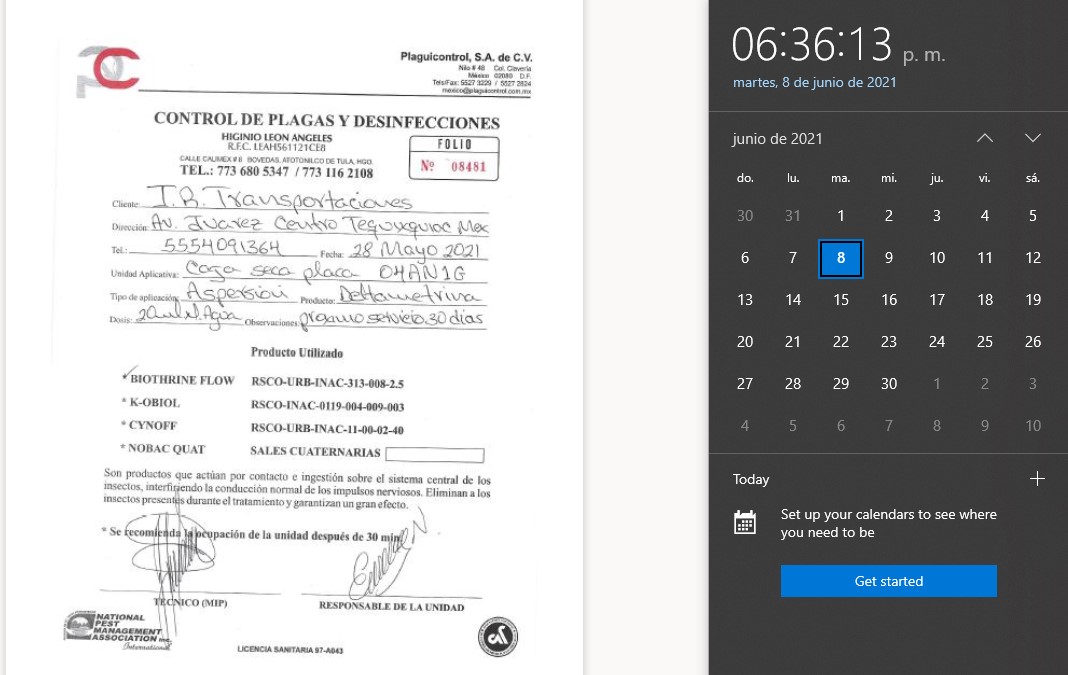 Plaguicontrol, S.A. de C.V.
Nilo # 48 Col. Clavería
México 02080 D.F.
Tels/Fax: 5527 3229 / 5527 2824
mexico@plaguicontrol.com.mx
CONTROL DE PLAGAS Y DESINFECCIONES
HIGINIO LEON ANGELES
R.F.C. LEAH561121CE8
CALLE CALIMEX # 8 BOVEDAS, ATOTONILCO DE TULA, HGO.
TEL.: 773 680 5347 / 773 116 2108
FOLIO
Nº 08481
Cliente: I.R. Transportaciones
Dirección: Av. Juarez Centro Tequixquiac Mex
Tel.: 5554091364 Fecha: 28 Mayo 2021
Unidad Aplicativa: Caja seca placa 04AN1G
Tipo de aplicación: Aspersión Producto: Deltametrina
Dosis: Agua Observaciones: servicio 30 días
Producto Utilizado
* BIOTHRINE FLOW RSCO-URB-INAC-313-008-2.5
* K-OBIOL RSCO-INAC-0119-004-009-003
* CYNOFF RSCO-URB-INAC-11-00-02-40
* NOBAC QUAT SALES CUATERNARIAS
Son productos que actúan por contacto e ingestión sobre el sistema central de los
insectos, interfiriendo la conducción normal de los impulsos nerviosos. Eliminan a los
insectos presentes durante el tratamiento y garantizan un gran efecto.
* Se recomienda la ocupación de la unidad después de 30 min.
TÉCNICO (MIP) RESPONSABLE DE LA UNIDAD
NATIONAL
PEST
MANAGEMENT
ASSOCIATION Inc.
International
LICENCIA SANITARIA 97-A043
06:36:13 p. m.
martes, 8 de junio de 2021
junio de 2021
do. lu. ma. mi. ju. vi. sá.
30 31 1 2 3 4 5
6 7 8 9 10 11 12
13 14 15 16 17 18 19
20 21 22 23 24 25 26
27 28 29 30 1 2 3
4 5 6 7 8 9 10
Today
Set up your calendars to see where
you need to be
Get started